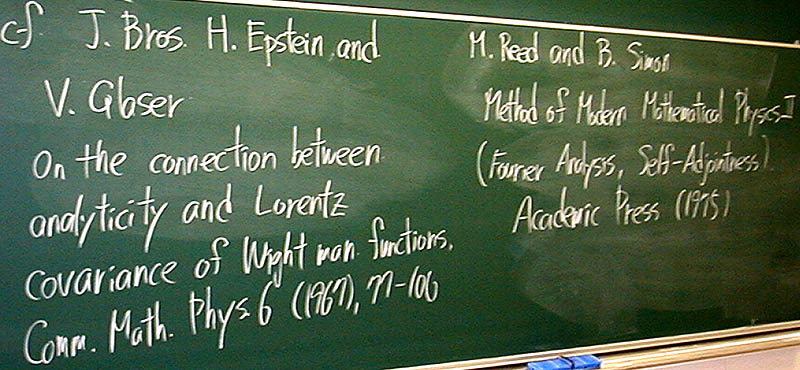 cf J. Bros. H. Epstein and
V. Glaser
On the connection between
analyticity and Lorentz
covariance of Wightman functions,
Comm. Math. Phys. 6 (1967), 77-100
M. Reed and B. Simon
Method of Modern Mathematical Physics II
(Fourier Analysis, Self-Adjointness).
Academic Press (1975)